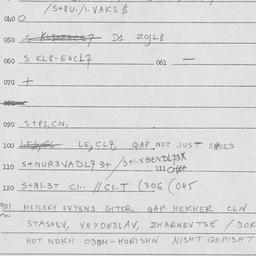 /S+8U./1.VAKS $
040 O
050 D1 ZOJL8
060 S KL8-E4CL7 061 —
070 +
090 S+P1.CN,
100 LE, CL7, GAP NOT JUST SHOES
110 S+NUR3VADL7 3+ /S+1.XBENDL73X
111
120 S+N1-3T C1.. // C1.T (306 (045
901 MEYLEKH EVYENS GITER GAP HEKHER CLN
STASHEV, VOYDESLAV, ZHARNEVTSE / DOR
HOT NOKH ODEM-HORISHN NISHT GEPISHT